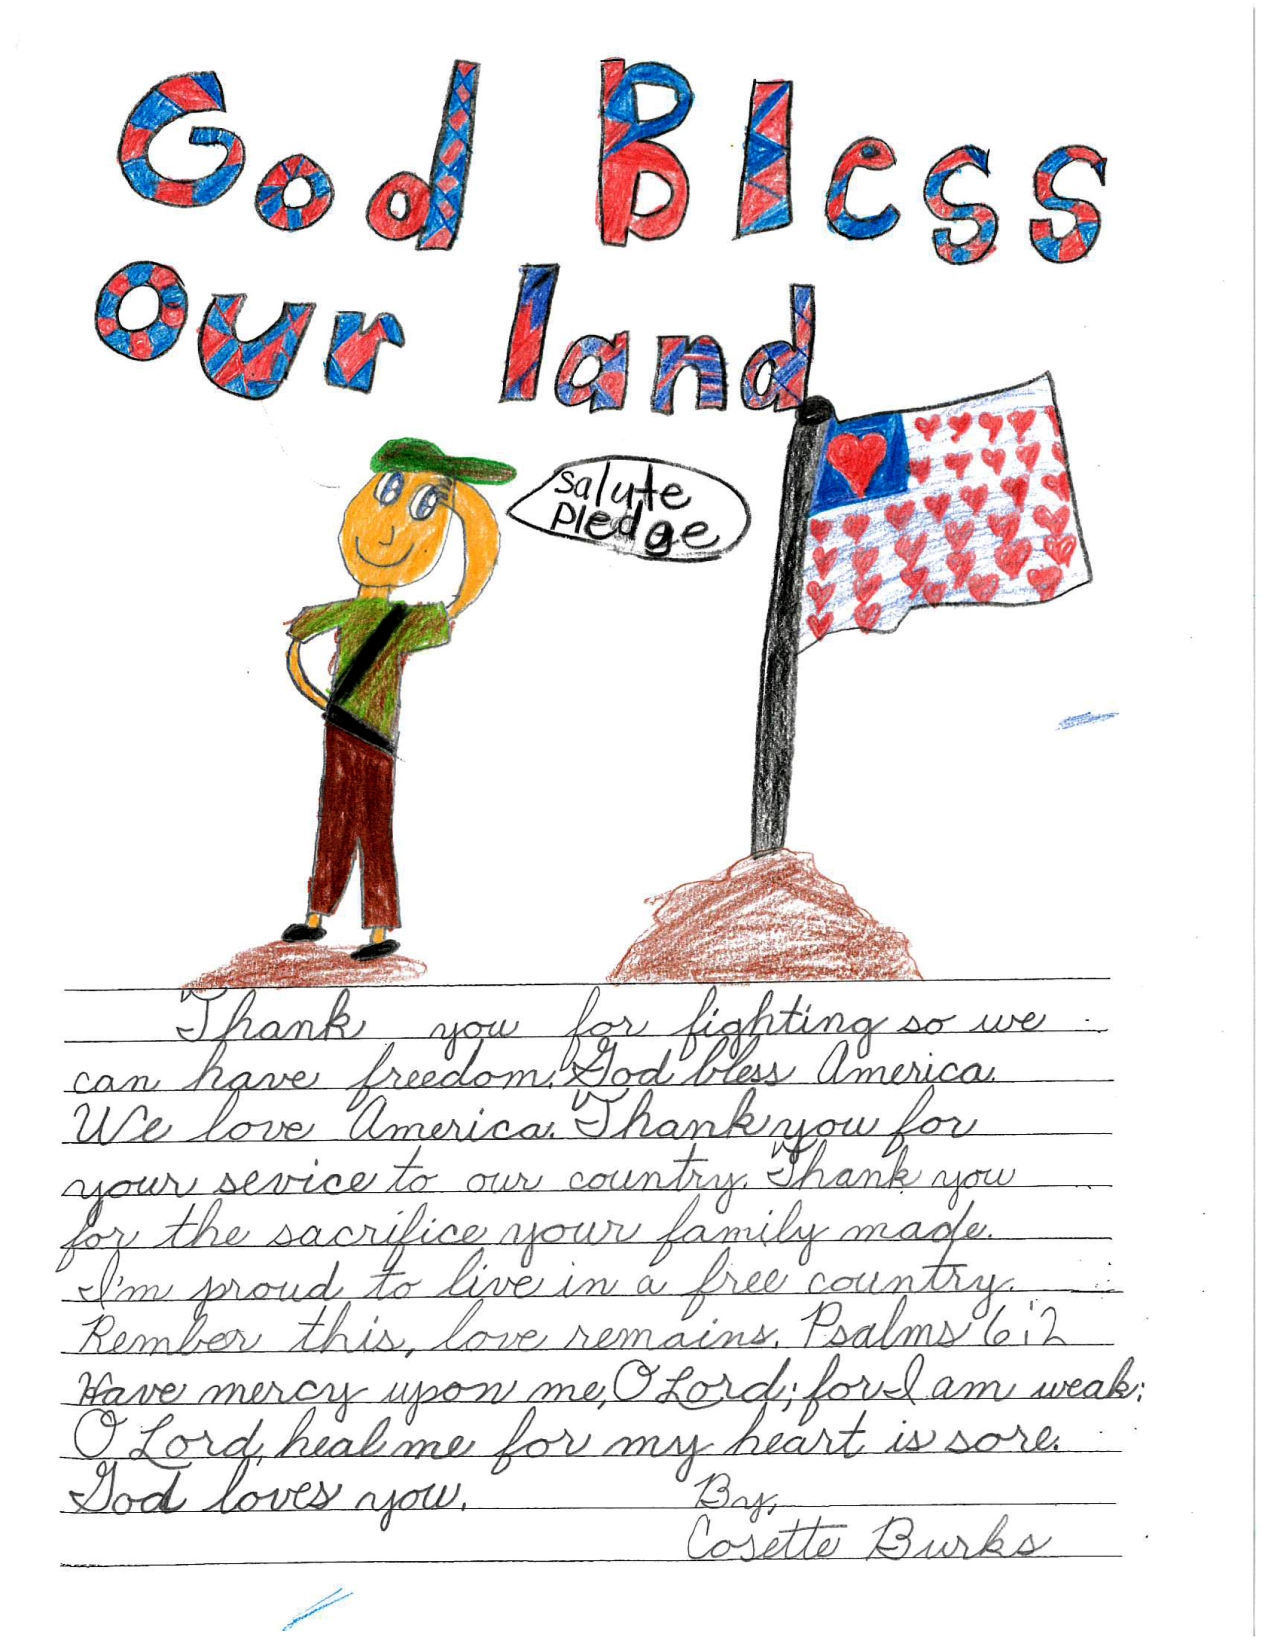 God Bless
our land
salute
pledge
Thank you for fighting so we
can have freedom. God bless America.
We love America. Thank you for
your sevice to our country. Thank you
for the sacrifice your family made.
I'm proud to live in a free country.
Rember this, love remains. Psalms 6:2
Have mercy upon me, O Lord; for I am weak:
O Lord, heal me for my heart is sore.
God loves you. By,
Cosette Burks